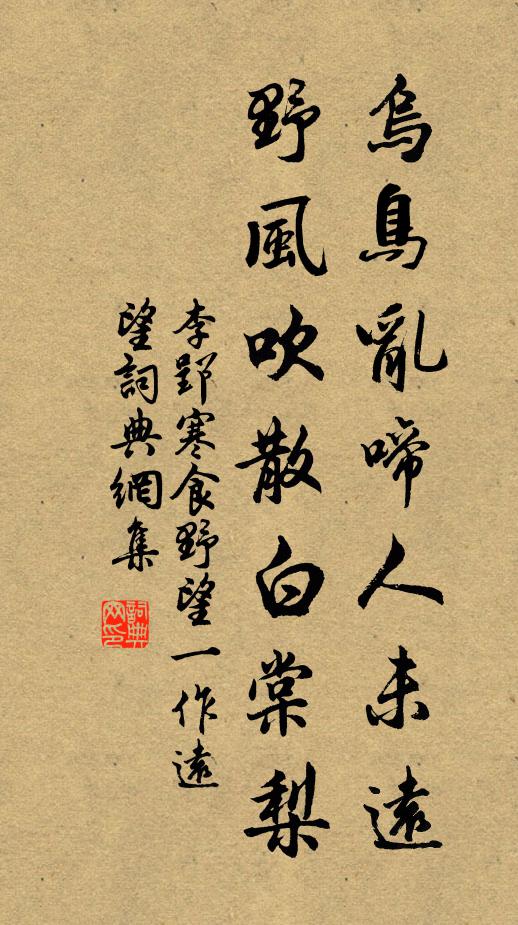 烏鳥亂啼人未遠
野風吹散白棠梨
李郢寒食野望一作遠
望詞典網集
詞典
网印